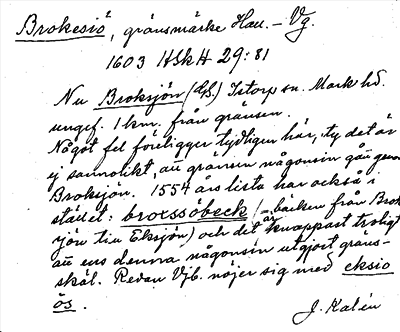 Brokesiö, gränsmärke Hall. – Vg.
1603 HSkH 29:81
Nu Broksjön (GS.) Istorp sn. Mark hd.
ungef. 1 km. från gränsen.
Något fel föreligger tydligen här, ty det är
ej sannolikt, att gränsen någonsin gått genom
Broksjön. 1554 års lista har också i
stället: brocssöbeck (= bäcken från Brok-
sjön till Eksjön) och det är knappast troligt
att ens denna någonsin utgjort gräns-
skäl. Redan Vjb. nöjer sig med eksio
ös.
J. Kalén